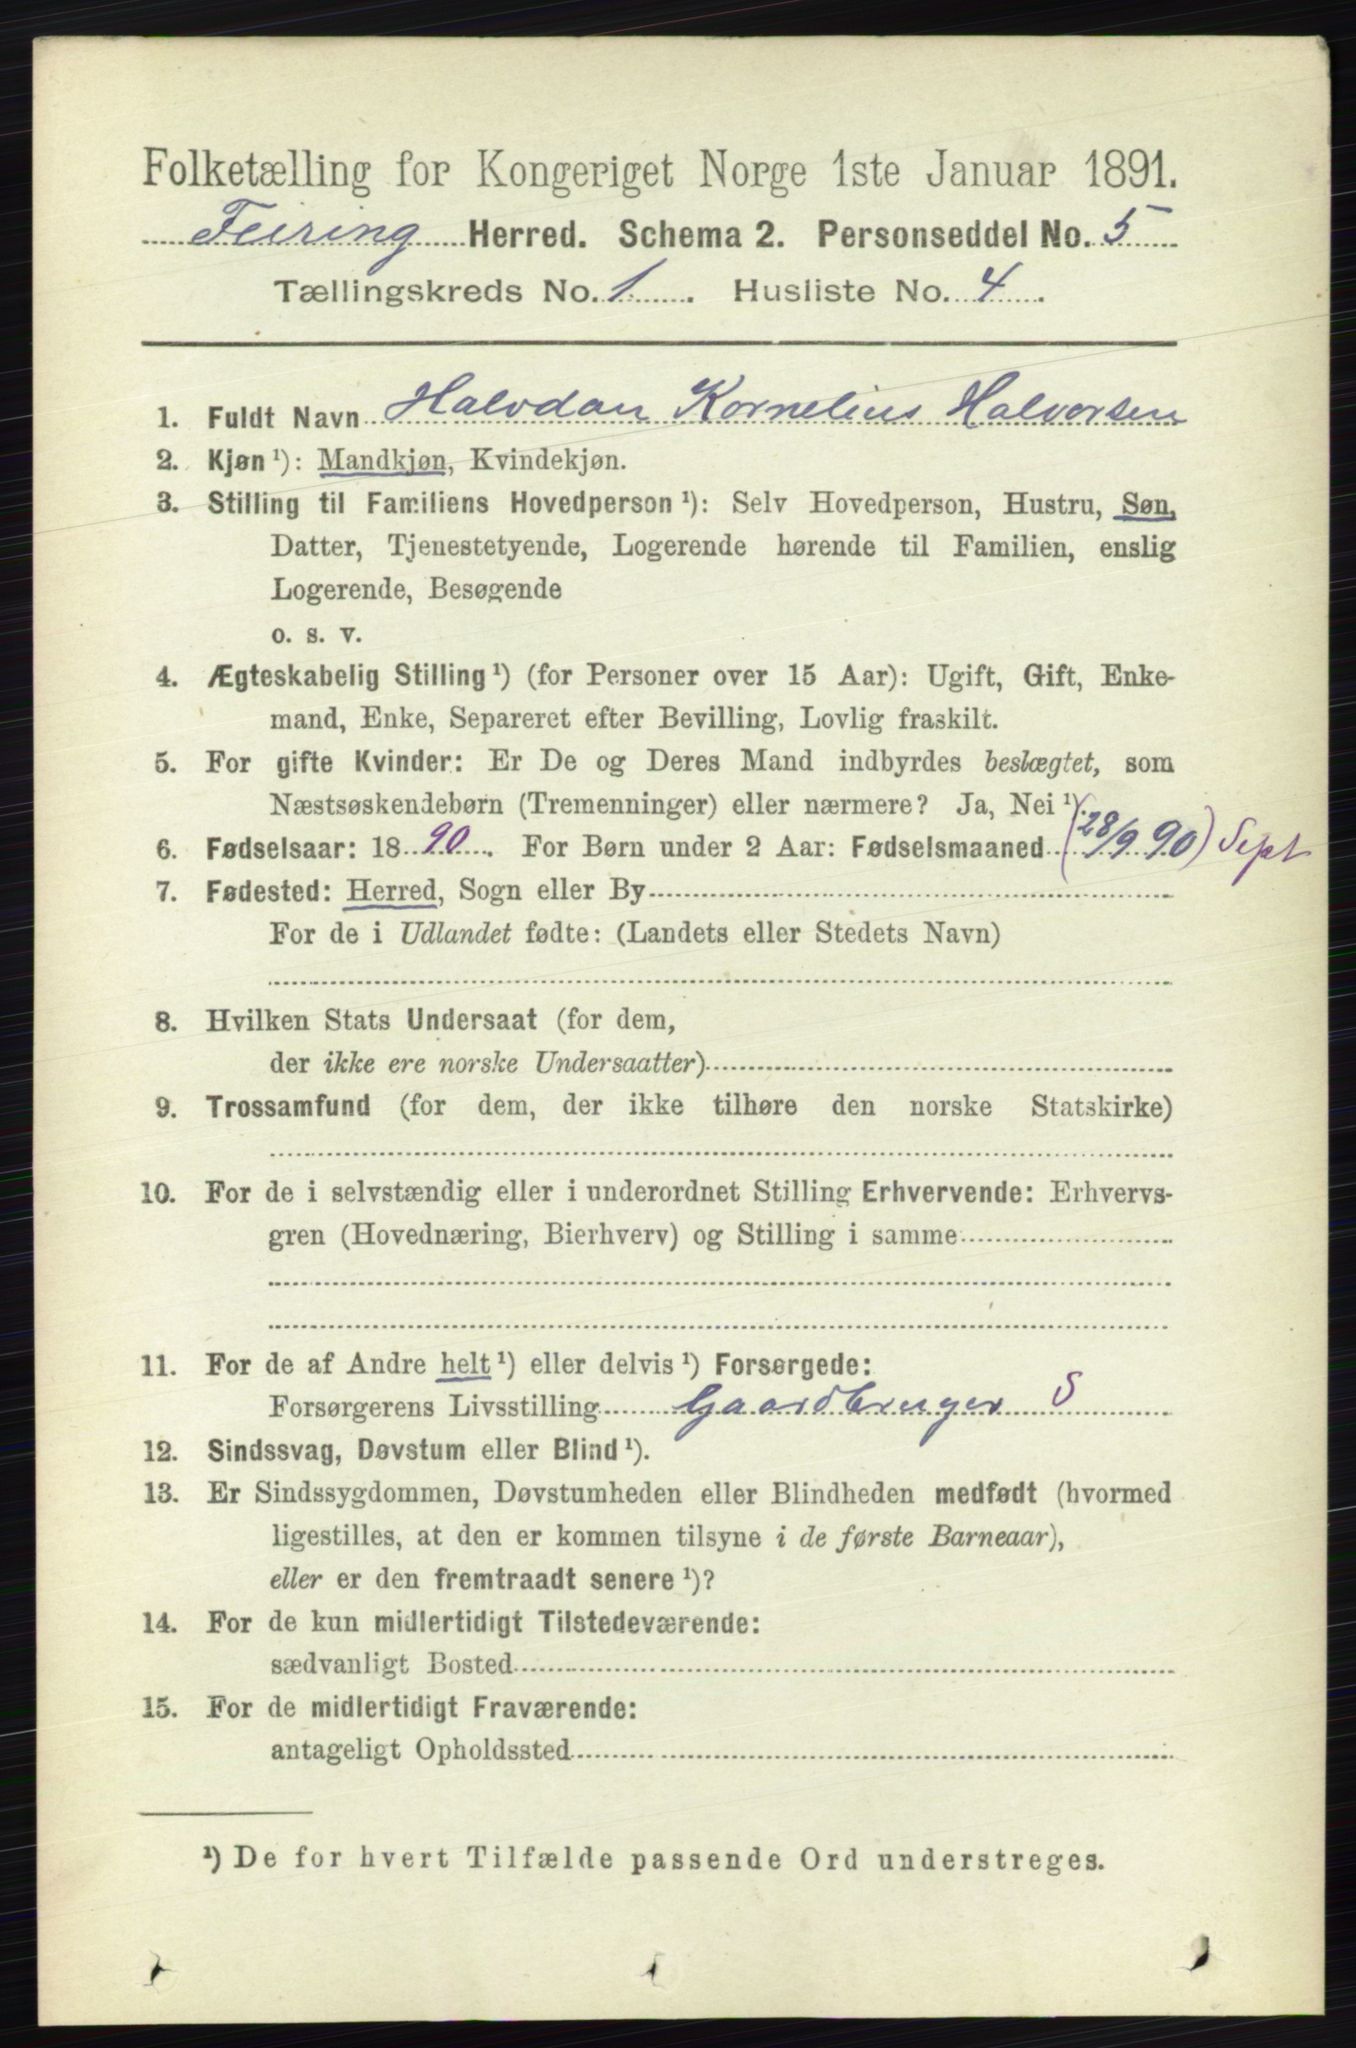 Folketælling for Kongeriget Norge 1ste Januar 1891.
Feiring Herred. Schema 2. Personseddel No. 5
Tællingskreds No. 1. Husliste No. 4.
1. Fuldt Navn Halvdan Kornelius Halvorsen
2. Kjøn ¹): Mandkjøn, Kvindekjøn.
3. Stilling til Familiens Hovedperson ¹): Selv Hovedperson, Hustru, Søn,
Datter, Tjenestetyende, Logerende hørende til Familien, enslig
Logerende, Besøgende
o. s. v.
4. Ægteskabelig Stilling ¹) (for Personer over 15 Aar): Ugift, Gift, Enke-
mand, Enke, Separeret efter Bevilling, Lovlig fraskilt.
5. For gifte Kvinder: Er De og Deres Mand indbyrdes beslægtet, som
Næstsøskendebørn (Tremenninger) eller nærmere? Ja, Nei ¹).
6. Fødselsaar: 1890. For Børn under 2 Aar: Fødselsmaaned (28/9 90) Sept
7. Fødested: Herred, Sogn eller By
For de i Udlandet fødte: (Landets eller Stedets Navn)
8. Hvilken Stats Undersaat (for dem,
der ikke ere norske Undersaatter)
9. Trossamfund (for dem, der ikke tilhøre den norske Statskirke)
10. For de i selvstændig eller i underordnet Stilling Erhvervende: Erhvervs-
gren (Hovednæring, Bierhverv) og Stilling i samme
11. For de af Andre helt ¹) eller delvis ¹) Forsørgede:
Forsørgerens Livsstilling Gaardbruger S
12. Sindssvag, Døvstum eller Blind ¹).
13. Er Sindssygdommen, Døvstumheden eller Blindheden medfødt (hvormed
ligestilles, at den er kommen tilsyne i de første Barneaar),
eller er den fremtraadt senere ¹)?
14. For de kun midlertidigt Tilstedeværende:
sædvanligt Bosted
15. For de midlertidigt Fraværende:
antageligt Opholdssted
¹) De for hvert Tilfælde passende Ord understreges.